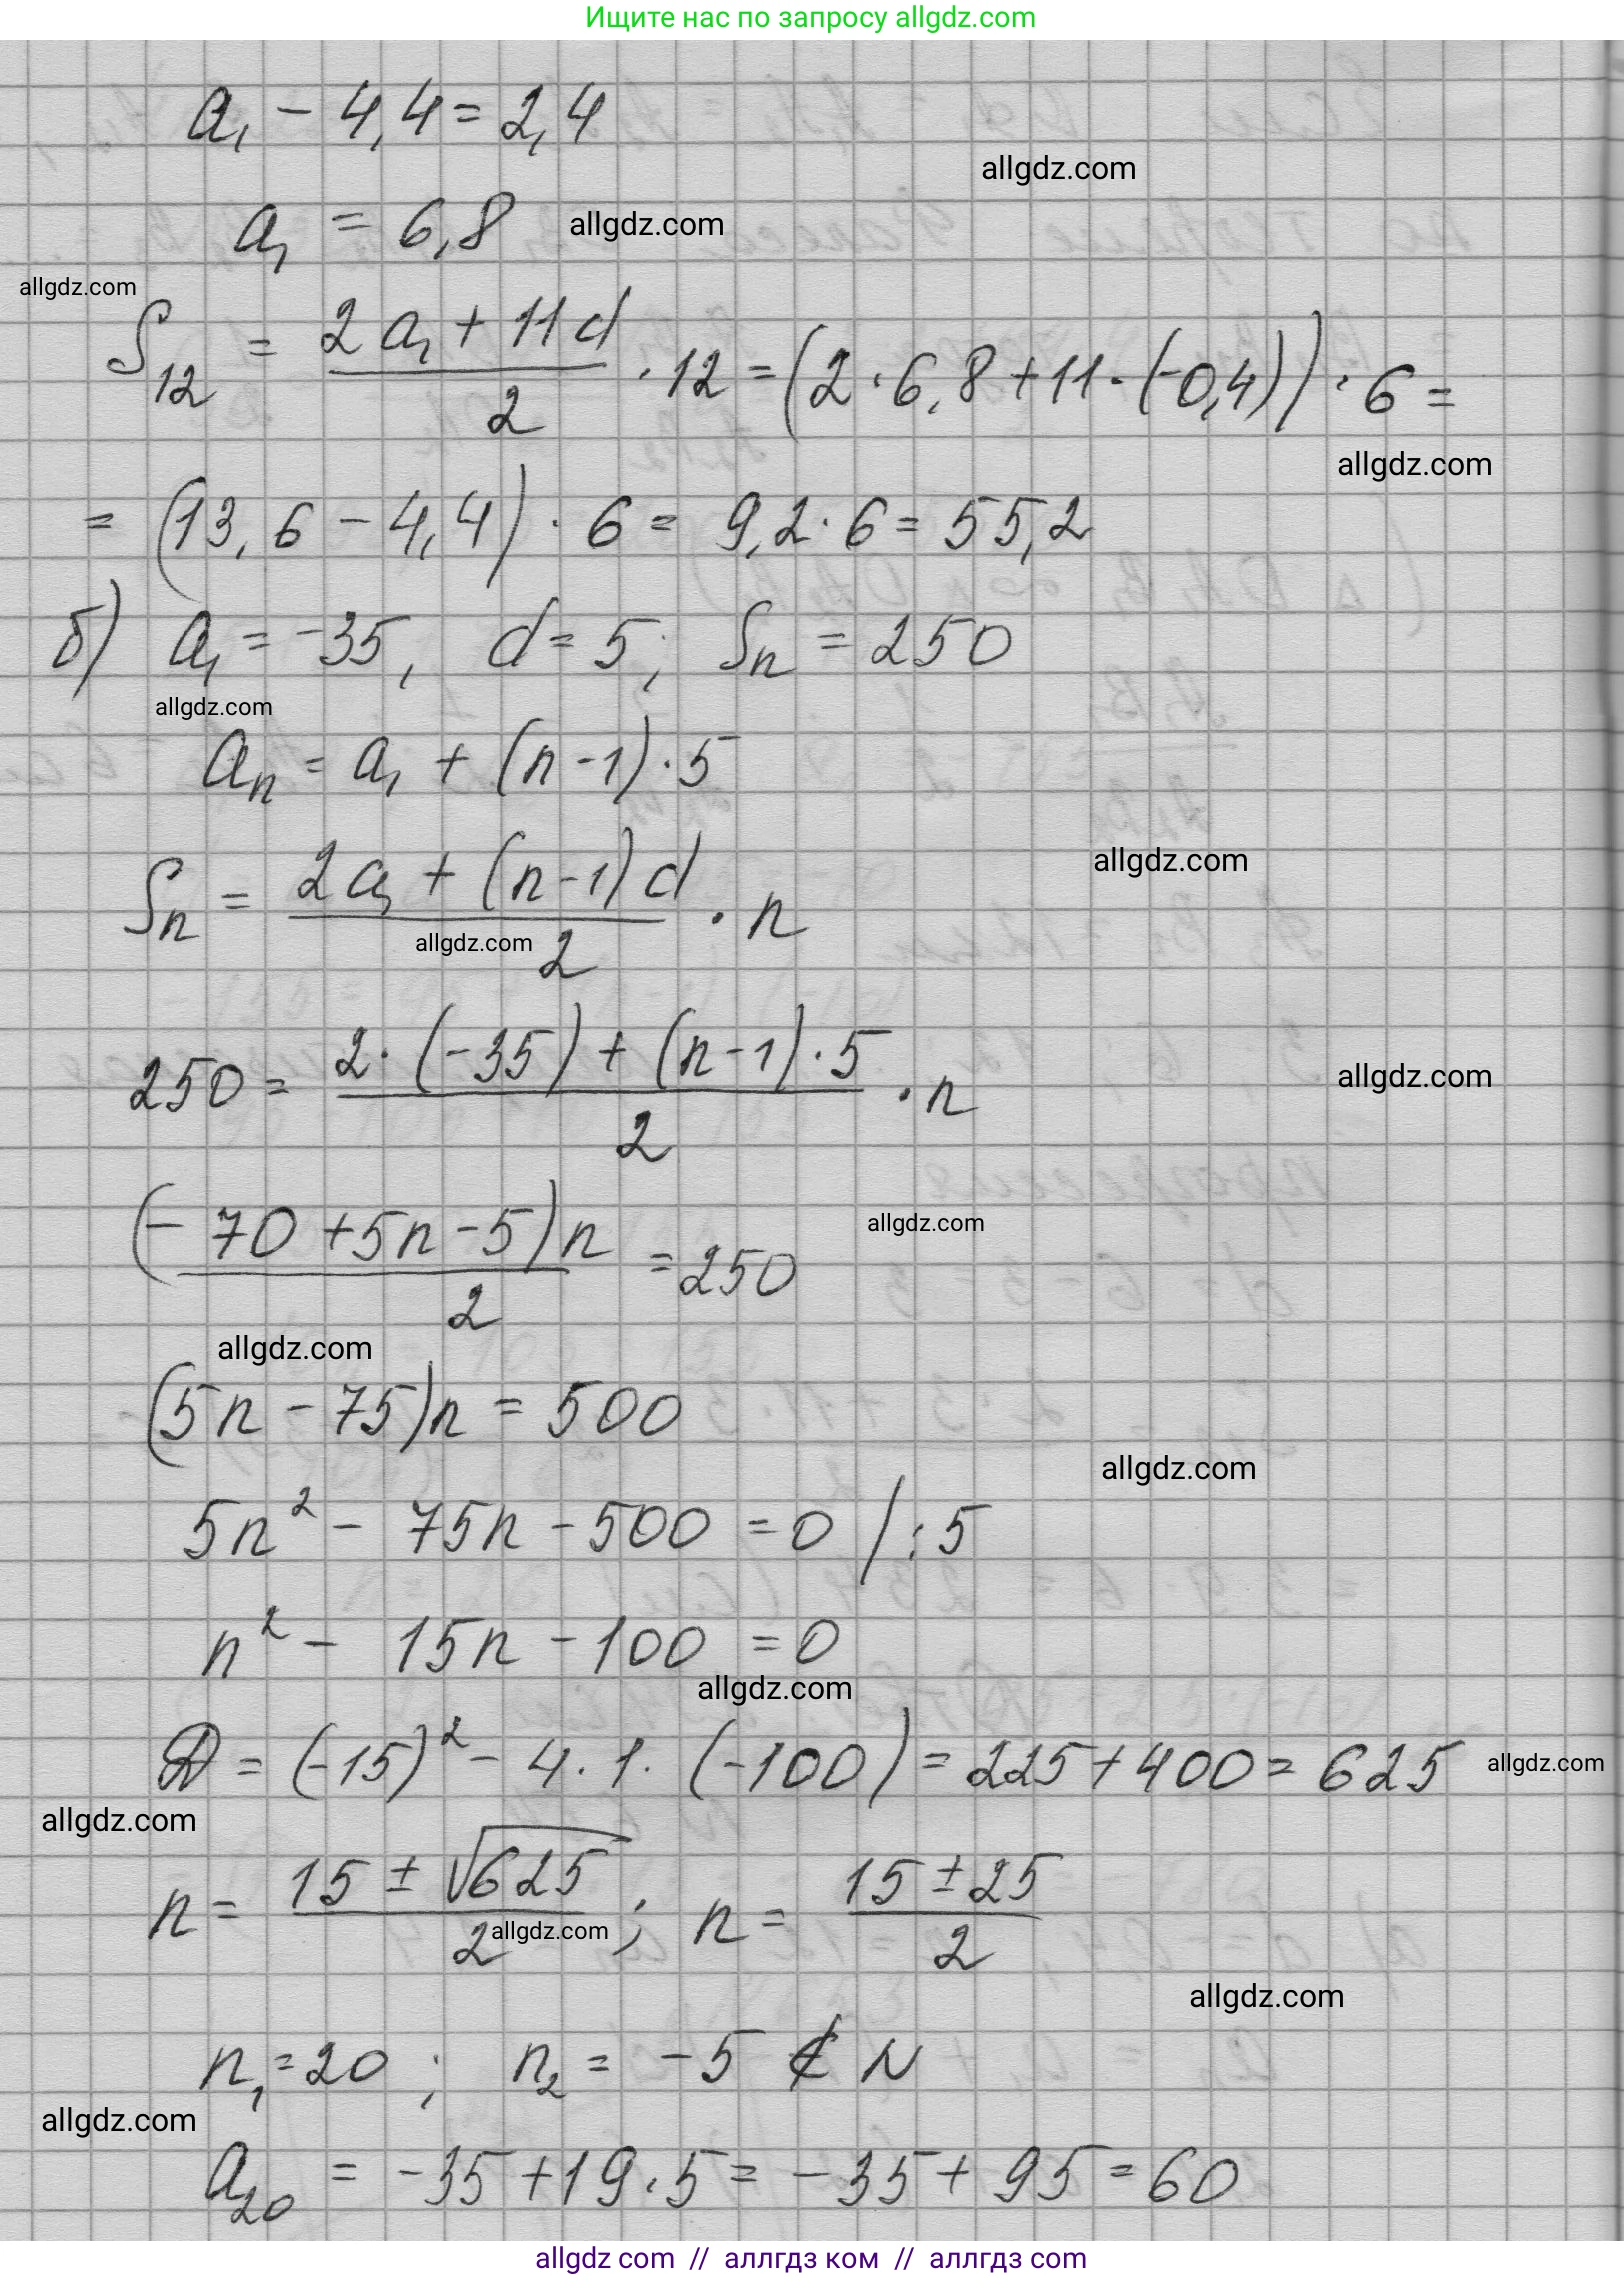 Ищите нас по запросу allgdz.com
a₁ - 4,4 = 2,4
allgdz.com
a₁ = 6,8 allgdz.com
allgdz.com
S₁₂ = (2a₁ + 11d)/2 · 12 = (2 · 6,8 + 11 · (-0,4)) · 6 =
allgdz.com
= (13,6 - 4,4) · 6 = 9,2 · 6 = 55,2
б) a₁ = -35, d = 5; Sn = 250
allgdz.com
an = a₁ + (n-1) · 5
allgdz.com
Sn = (2a₁ + (n-1)d)/2 · n
allgdz.com
250 = (2 · (-35) + (n-1) · 5)/2 · n
allgdz.com
(-70 + 5n - 5)n/2 = 250
allgdz.com
allgdz.com
(5n - 75)n = 500
allgdz.com
5n² - 75n - 500 = 0 / : 5
n² - 15n - 100 = 0
allgdz.com
D = (-15)² - 4 · 1 · (-100) = 225 + 400 = 625 allgdz.com
allgdz.com
n = (15 ± √625)/2; n = (15 ± 25)/2
allgdz.com
allgdz.com
n₁ = 20; n₂ = -5 ∉ N
allgdz.com
a₂₀ = -35 + 19 · 5 = -35 + 95 = 60
allgdz com // аллгдз ком // аллгдз com